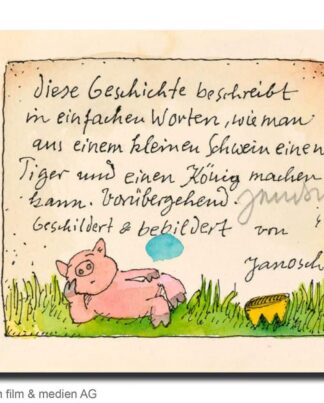 diese Geschichte beschreibt
in einfachen Worten, wie man
aus einem kleinen Schwein einen
Tiger und einen König machen
kann. Vorübergehend. Janosch
Geschildert & bebildert von
Janosch
film & medien AG